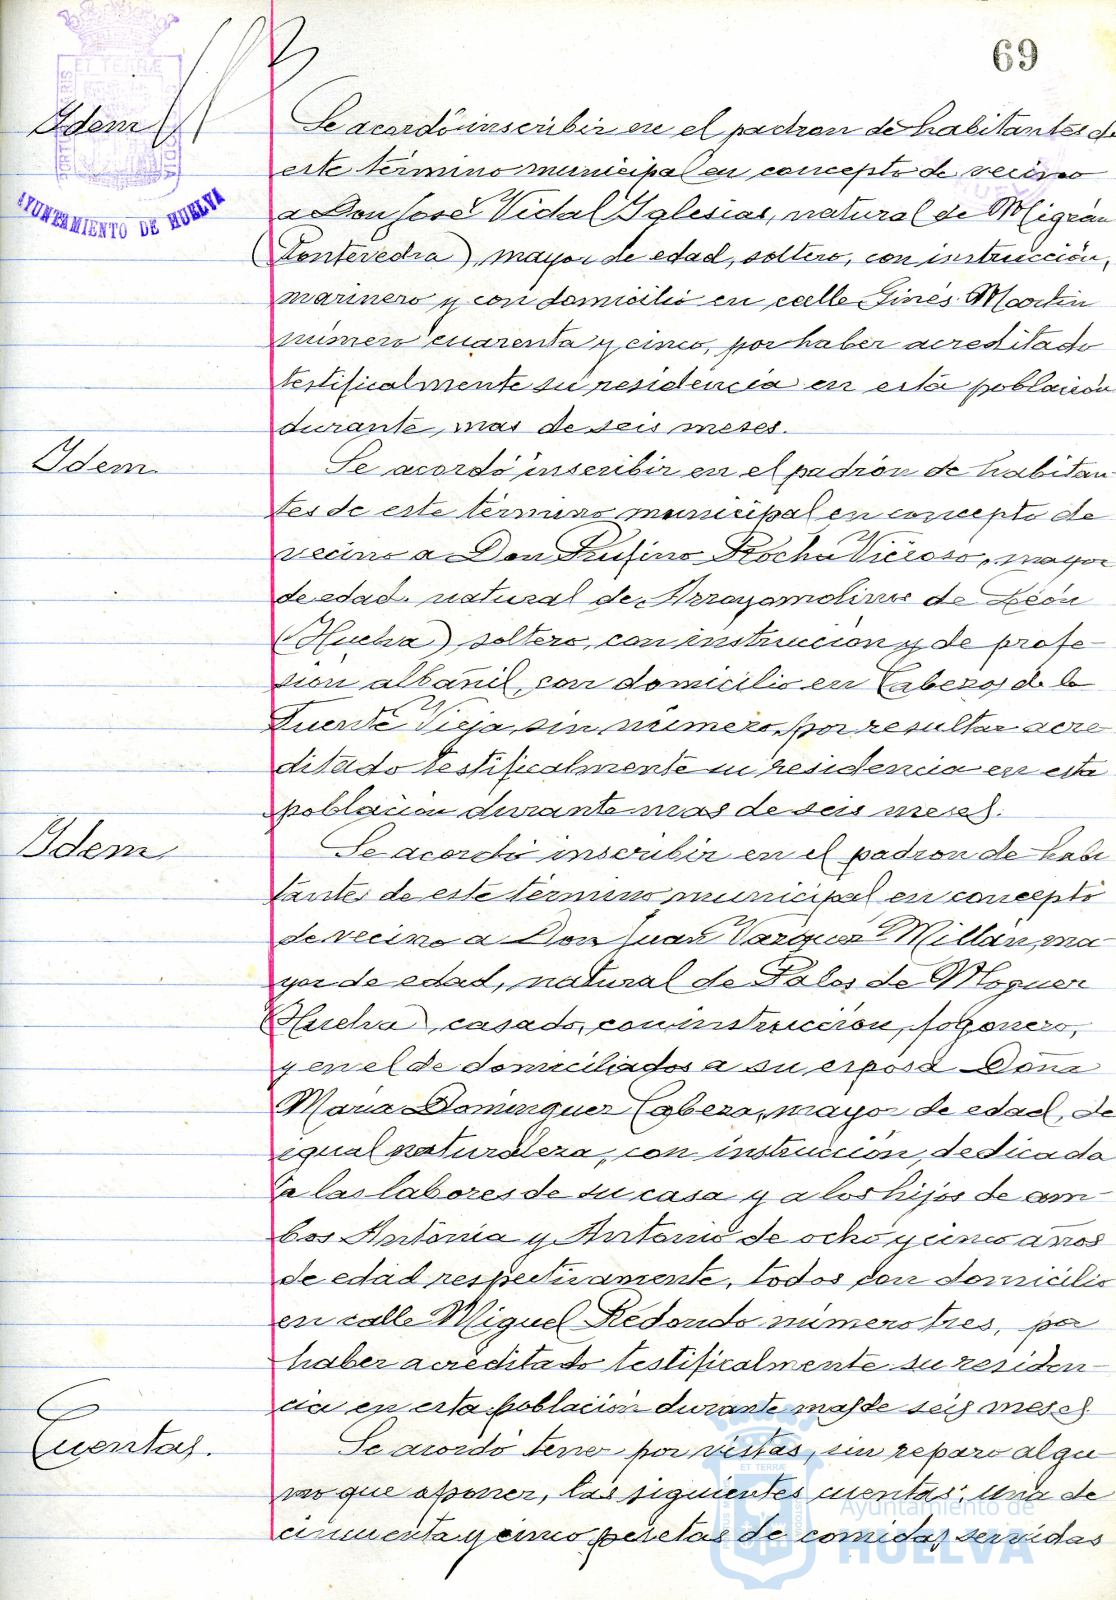 69
Idem
Se acordó inscribir en el padron de habitantes de
este término municipal en concepto de vecino
a Don José Vidal Yglesias, natural de Migrán
(Pontevedra), mayor de edad, soltero, con instrucción,
marinero y con domicilio en calle Ginés Martin
número cuarenta y cinco, por haber acreditado
testificalmente su residencia en esta población
durante mas de seis meses.
Idem.
Se acordó inscribir en el padrón de habitan-
tes de este término municipal en concepto de
vecino a Don Rufino Rocha Vicioso, mayor
de edad, natural de Arroyomolinos de León
(Huelva) soltero, con instrucción y de profe-
sión albañil, con domicilio en Cabezos de la
Fuente Vieja, sin número, por resultar acre
ditado testificalmente su residencia en esta
población durante mas de seis meses.
Idem
Se acordó inscribir en el padron de habi
tantes de este término municipal en concepto
de vecino a Don Juan Vazquez Millán, ma-
yor de edad, natural de Palos de Moguer
(Huelva), casado, con instrucción, fogonero,
y en el de domiciliados a su esposa Doña
Maria Dominguez Cabeza, mayor de edad, de
igual naturaleza, con instrucción, dedicada
a las labores de su casa y a los hijos de am-
bos Antonia y Antonio de ocho y cinco años
de edad respectivamente, todos con domicilio
en calle Miguel Redondo número tres, por
haber acreditado testificalmente su residen-
cia en esta población durante mas de seis meses
Cuentas.
Se acordó tener por vistas, sin reparo algu-
no que oponer, las siguientes cuentas: Una de
cincuenta y cinco pesetas de comidas servidas
AYUNTAMIENTO DE HUELVA
Ayuntamiento de
HUELVA